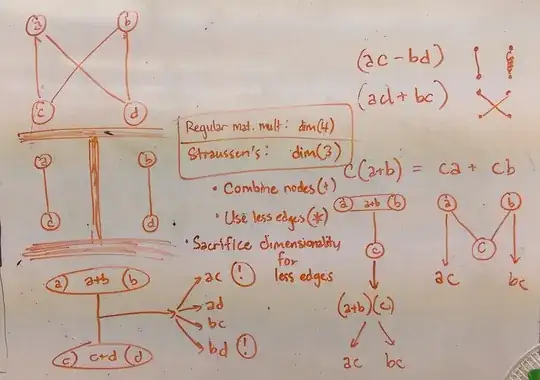 a b
c d
(ac - bd)
(ad + bc)
Regular mat. mult: dim(4)
Straussen's: dim(3)
• Combine nodes (+)
• Use less edges (*)
• Sacrifice dimensionality
for
less edges
a b
c d
a) a+b (b
c) c+d (d
ac (!)
ad
bc
bd (!)
c(a+b) = ca + cb
a) a+b (b
c
(a+b)(c)
ac bc
a b
c
ac bc